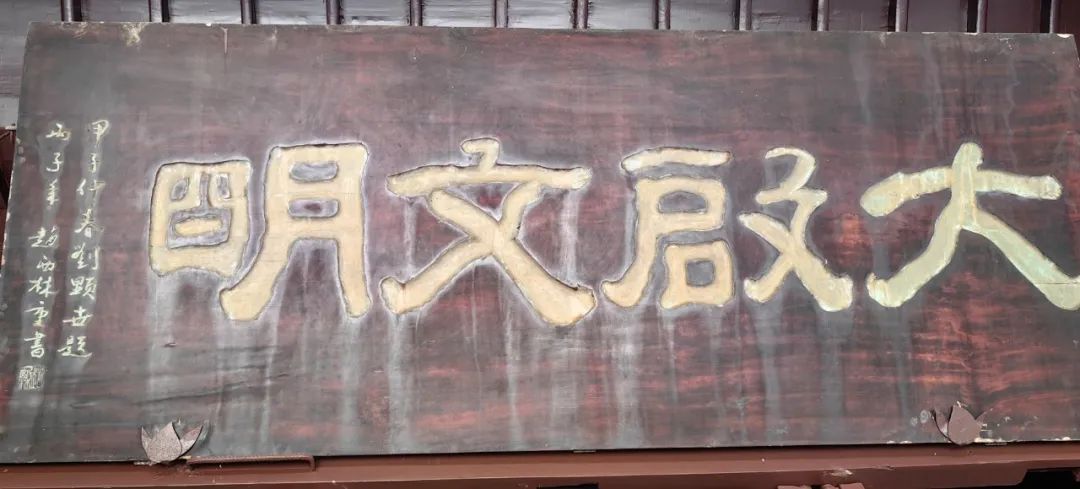 大啟文明
甲子仲春劉顯世題
丙子年 趙西林重書